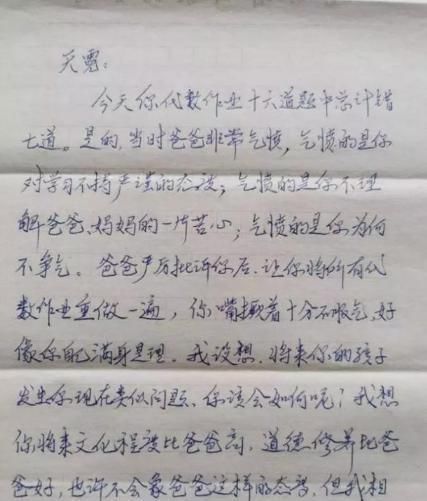 天霓:
今天你代数作业十六道题中总计错
七道。是的,当时爸爸非常气愤,气愤的是你
对学习不持严谨的态度;气愤的是你不理
解爸爸、妈妈的一片苦心;气愤的是你为何
不争气。爸爸严厉批评你后,让你将所有代
数作业重做一遍,你嘴撅着十分不服气,好
像你自己满身是理。我设想,将来你的孩子
发生你现在类似问题、你该会如何呢?我想
你将来文化程度比爸爸高,道德修养比爸
爸好,也许不会象爸爸这样的态度,但我相